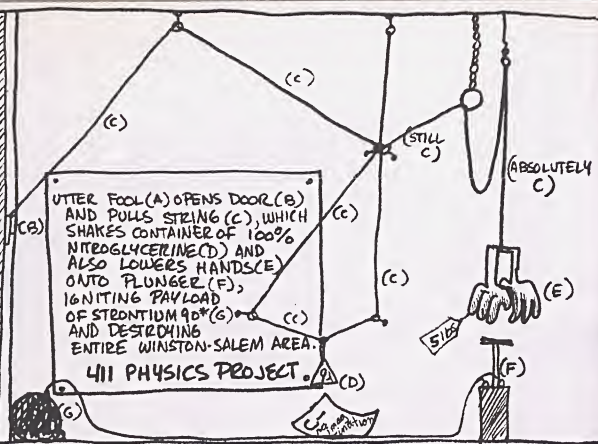 (C)
(C)
(STILL
C)
(ABSOLUTELY
C)
(B)
UTTER FOOL(A) OPENS DOOR(B)
AND PULLS STRING (C), WHICH
SHAKES CONTAINER OF 100%
NITROGLYCERINE(D) AND
ALSO LOWERS HANDS(E)
ONTO PLUNGER(F),
IGNITING PAYLOAD
OF STRONTIUM 90*(G)
AND DESTROYING
ENTIRE WINSTON-SALEM AREA.
411 PHYSICS PROJECT
(C)
(C)
(C)
(E)
5 lbs
(F)
(D)
(G)